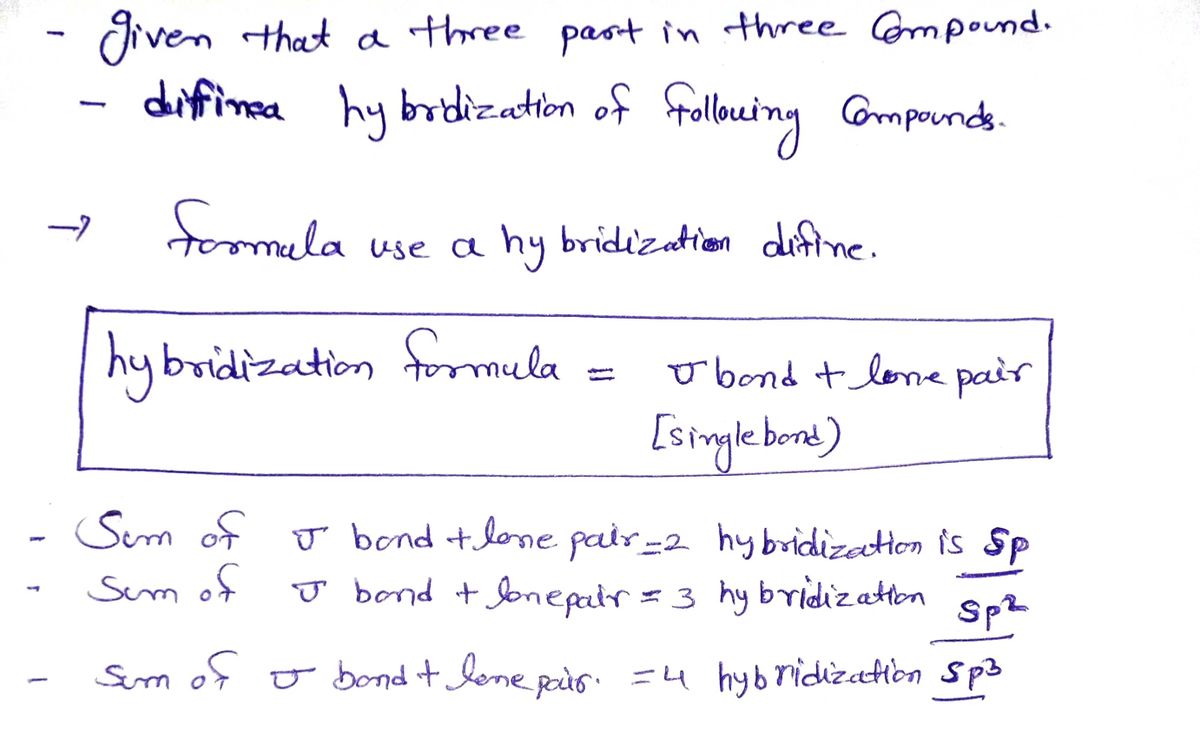 - given that a three part in three Compound.
- difinea hybridization of following Compounds.
→ formula use a hybridization difine.
hybridization formula = σ bond + lone pair
[single bond)
- Sum of σ bond + lone pair = 2 hybridization is sp
- Sum of σ bond + lone pair = 3 hybridization sp²
- Sum of σ bond + lone pair. = 4 hybridization sp³